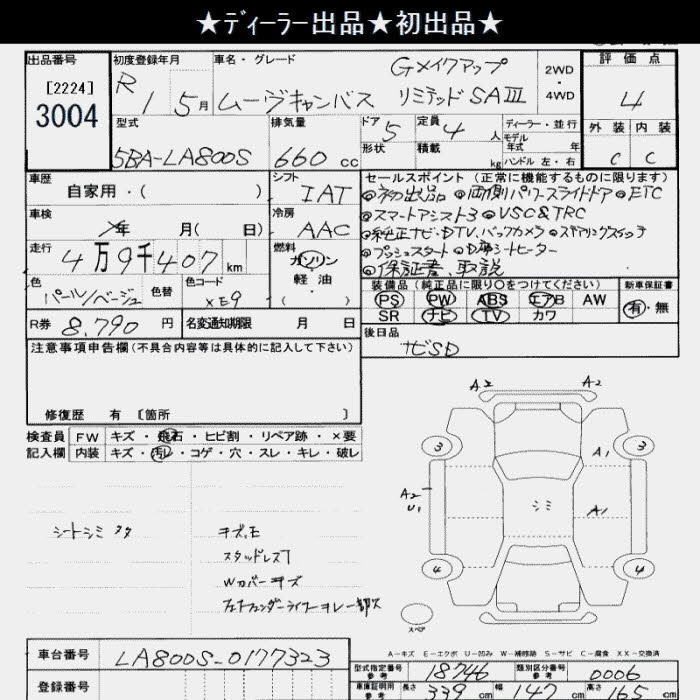 ★ディーラー出品★初出品★
出品番号 [2224] 3004
初度登録年月 R1 5月
車名・グレード ムーヴキャンバス Gメイクアップ リミテッド SAⅢ
2WD・4WD
評価点 4
外装 C 内装 C
型式 5BA-LA800S
排気量 660 cc
ドア 5 形状
定員 4 人 積載 kg
ディーラー・並行
モデル年式 年
ハンドル 左・右
車歴 自家用・( )
シフト IAT
車検 年 月( 日)
冷房 AAC
走行 4万9千407 km
燃料 ガソリン 軽油 ( )
色 パール/ベージュ 色替 色コード XE9
R券 8,790 円 名変通知期限 月 日
セールスポイント (正常に機能するものに限ります)
◎初出品 ◎両側パワースライドドア ◎ETC
◎スマートアシスト3 ◎VSC&TRC
◎純正ナビ・DTV、バックカメラ ◎ステアリングスイッチ
◎プッシュスタート ◎D席シートヒーター
◎保証書、取説
装備品 (純正品に限り○をつけてください) 新車保証書
PS PW ABS エアB AW 有・無
SR ナビ TV カワ
後日品
ナビSD
注意事項申告欄(不具合内容等は具体的に記入して下さい)
修復歴 有 〔箇所 〕
検査員記入欄
FW キズ・飛石・ヒビ割・リペア跡・×要
内装 キズ・汚レ・コゲ・穴・スレ・キレ・破レ
シートシミ
キズ、エ
スタッドレス
Wカバーキズ
A2 A2
3 3
A1
A2 U1
シミ
A1
4 4
スペア
A-キズ E-エクボ U-凹み W-補修跡 S-サビ C-腐食 XX-交換済
車台番号 LA800S-0177323
登録番号
型式指定番号 参考 18746 類別区分番号 参考 0006
車庫証明用 参考 長さ 339 cm 幅 147 cm 高さ 165 cm